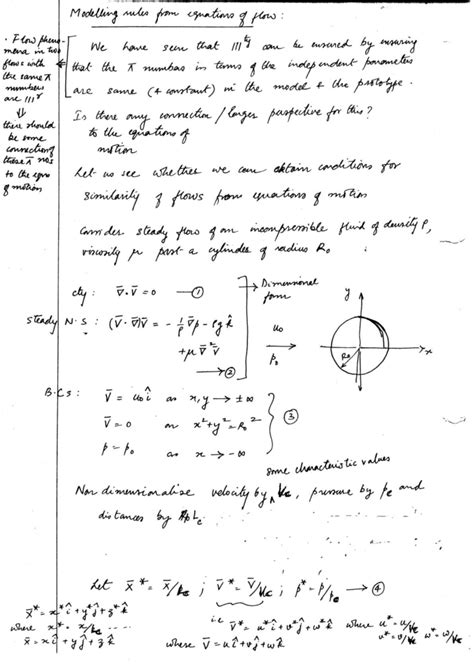 Modelling rules from equations of flow :
• Flow pheno-
mena in two
flows with
the same π
numbers
are |||r
⇓
there should
be some
connection of
these π nos
to the eqns
of motion
We have seen that |||ty can be ensured by ensuring
that the π numbers in terms of the independent parameters
are same (& constant) in the model & the prototype.
Is there any connection / larger perspective for this?
to the equations of
motion
Let us see whether we can obtain conditions for
similarity of flows from equations of motion
Consider steady flow of an incompressible fluid of density ρ,
viscosity μ past a cylinder of radius R₀.
cty : ∇̄·V̄ = 0 — ①
→ Dimensional
form
Steady N.S : (V̄·∇̄)V̄ = - 1/ρ ∇̄p - ρg k̂
+ μ ∇̄²V̄
→ ②
u₀
p₀
y
x
R₀
B.Cs :
V̄ = u₀ î as x, y → ± ∞
V̄ = 0 on x² + y² = R₀²
③
p = p₀ as x → -∞
some characteristic values
Non dimensionalise velocity by Vc, pressure by pc and
distances by Lc.
Let x̄* = x̄/Lc ; V̄* = V̄/Vc ; p* = p/pc → ④
x̄* = x* î + y* ĵ + z* k̂
where x* = x/Lc
x̄ = x î + y ĵ + z k̂
i.e V̄* = u* î + v* ĵ + w* k̂ where u* = u/Vc
v* = v/Vc w* = w/Vc
where V̄ = u î + v ĵ + w k̂